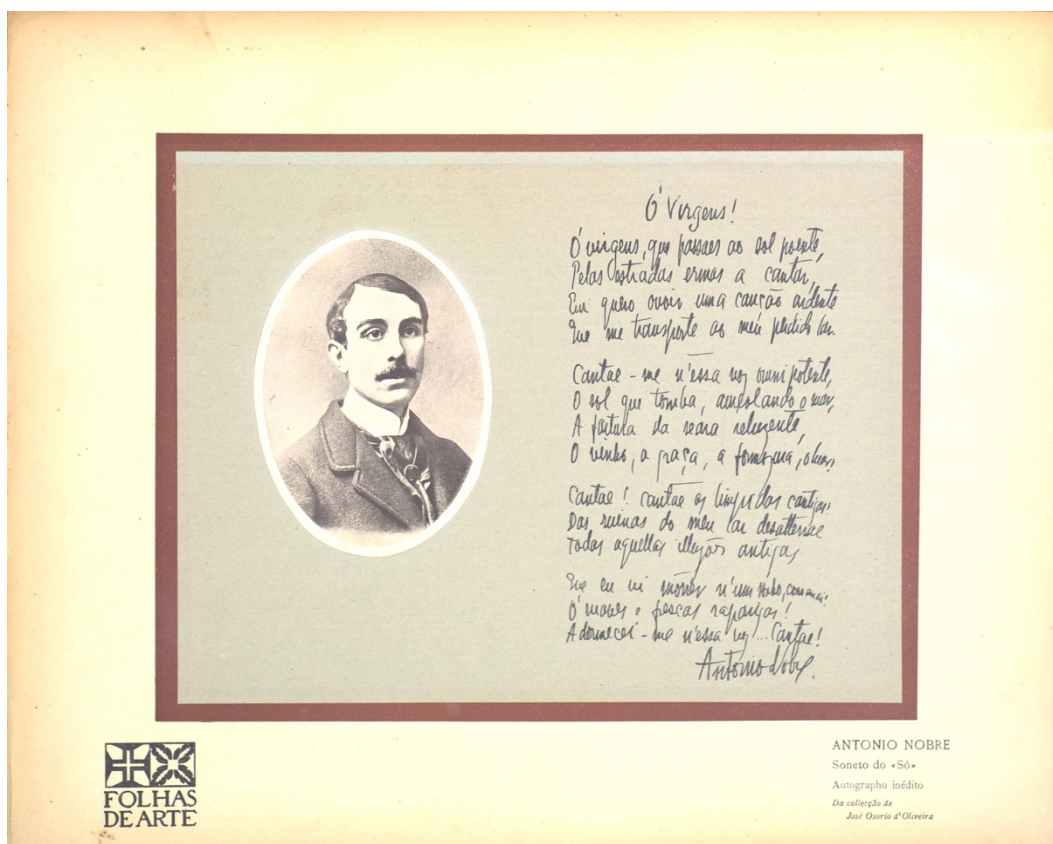 Ó Virgens!
Ó virgens, que passaes ao sol poente,
Pelas estradas ermas a cantar,
Eu quero ouvir uma canção ardente
Que me transporte ao meu perdido lar.
Cantae-me n'essa voz omnipotente,
O sol que tomba, aureolando o mar,
A fartura da seara reluzente,
O vinho, a graça, a formosura, o luar!
Cantae! cantae as limpidas cantigas!
Das ruinas do meu lar desatterrae
Todas aquellas illusões antigas
Que eu vi morrer n'um sonho, como um ai.
Ó suaves e frescas raparigas!
Adormecei-me n'essa voz... Cantae!
Antonio Nobre.
FOLHAS
DE ARTE
ANTONIO NOBRE
Soneto do «Só»
Autographo inédito
Da collecção de
José Osorio d'Oliveira